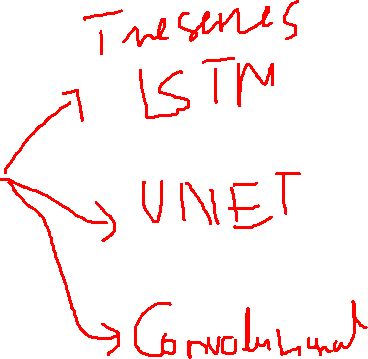 Tmeseries
LSTM
UNET
Convolusional